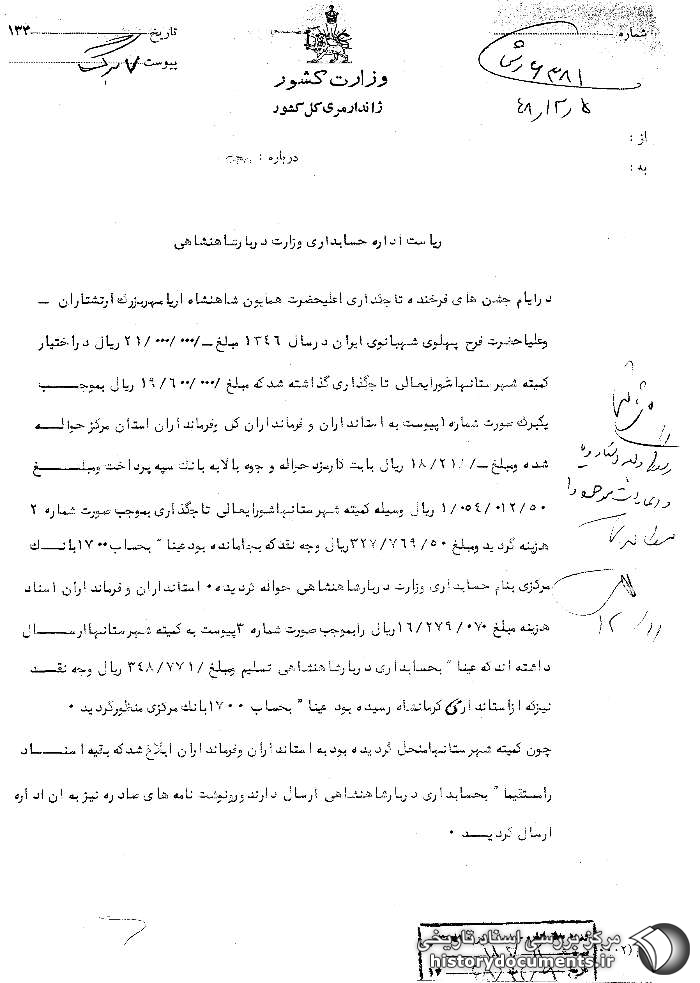 شماره
۶۳۸۱
۴۸
تاریخ ۱۳۳
پیوست ۷ برگ
وزارت کشور
ژاندارمری کل کشور
از :
به :
درباره :
ریاست اداره حسابداری وزارت دربارشاهنشاهی
درایام جشن های فرخنده تاجگذاری اعلیحضرت همایون شاهنشاه اریامهربزرگ ارتشتاران ــ
وعلیاحضرت فرح پهلوی شهبانوی ایران درسال ۱۳۴۶ مبلغ ــ/۲۱/۰۰۰/۰۰۰ ریال دراختیار
کمیته شهرستانهاشورایعالی تاجگذاری گذاشته شدکه مبلغ /۱۹/۶۰۰/۰۰۰ ریال بموجب
یکبرگ صورت شماره ۱پیوست به استانداران و فرمانداران کل وفرمانداران استان مرکز حواله
شده ومبلغ ــ/۱۸/۲۱۸ ریال بابت کارمزد حواله و جوه بالابه بانک سپه پرداخت ومبلغ
۱/۰۵۴/۰۱۲/۵۰ ریال وسیله کمیته شهرستانهاشورایعالی تاجگذاری بموجب صورت شماره ۲
هزینه گردید ومبلغ ۳۲۷/۷۶۹/۵۰ریال وجه نقدکه بجامانده بودعینا " بحساب ۱۷۰۰بانک
مرکزی بنام حسابداری وزارت دربارشاهنشاهی حواله گردیده ۰ استانداران و فرمانداران اسناد
هزینه مبلغ ۱۶/۲۷۹/۰۷۰ریال رابموجب صورت شماره ۳پیوست به کمیته شهرستانهاارسال
داشته اندکه عینا " بحسابداری دربارشاهنشاهی تسلیم ومبلغ /۳۴۸/۷۷۱ ریال وجه نقد
نیزکه ازاستانداری کرمانشاه رسیده بود عینا " بحساب ۱۷۰۰بانک مرکزی منظورگردید ۰
چون کمیته شهرستانهامنحل گردیده بودبه استانداران وفرمانداران ابلاغ شدکه بقیه اسناد
رامستقیما " بحسابداری دربارشاهنشاهی ارسال دارندورونوشت نامه های صادره نیزبه ان اداره
ارسال گردید ۰
مرکز بررسی اسناد تاریخی
historydocuments.ir